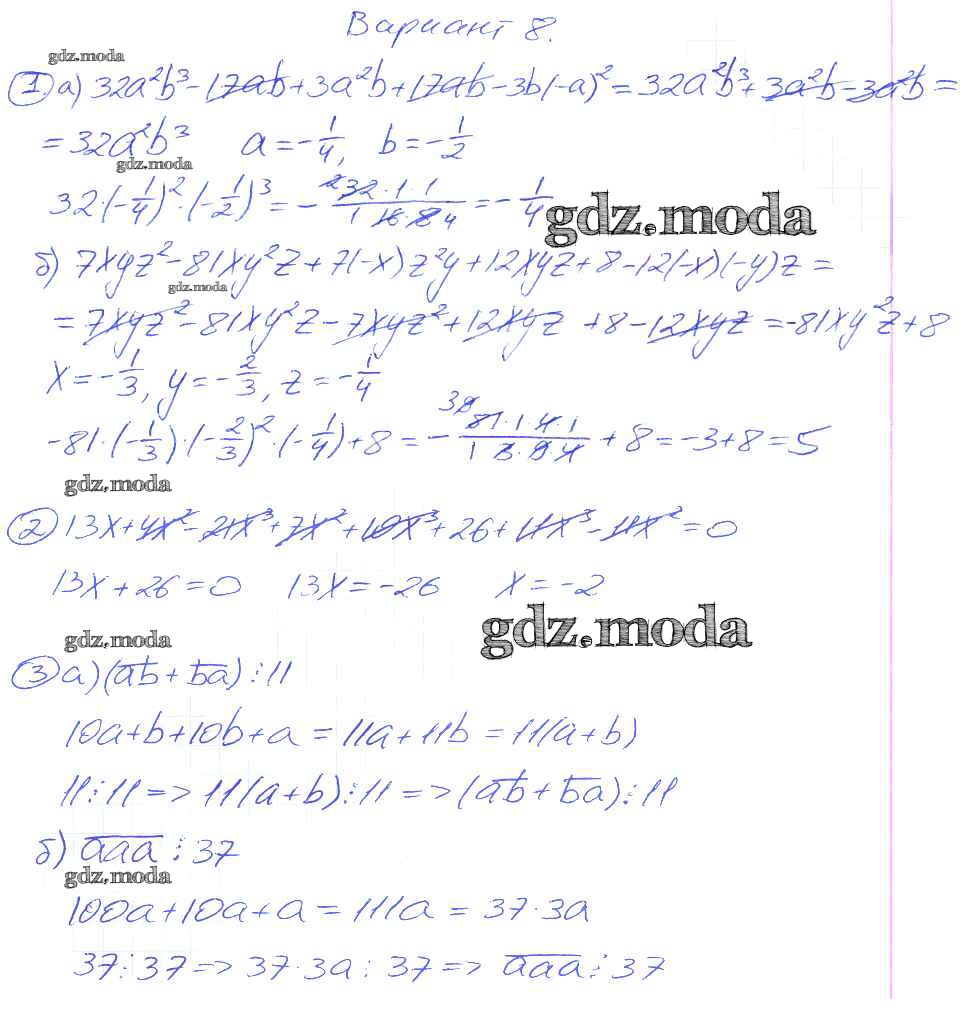 Вариант 8.
gdz.moda
① а) 32a²b³ - 17ab + 3a²b + 17ab - 3b(-a)² = 32a²b³ + 3a²b - 3a²b =
= 32a²b³ a = -1/4, b = -1/2
gdz.moda
32·(-1/4)²·(-1/2)³ = - 2 32·1·1 / 1 16·8 4 = -1/4
gdz.moda
б) 7xyz² - 81xy²z + 7(-x)z²y + 12xyz + 8 - 12(-x)(-y)z =
gdz.moda
= 7xyz² - 81xy²z - 7xyz² + 12xyz + 8 - 12xyz = -81xy²z + 8
x = -1/3, y = -2/3, z = -1/4
-81·(-1/3)·(-2/3)²·(-1/4) + 8 = - 81·1·4·1 / 1 3·9·4 + 8 = -3 + 8 = 5
gdz.moda
② 13x + 4x² - 21x³ + 7x² + 10x³ + 26 + 11x³ - 11x² = 0
13x + 26 = 0 13x = -26 x = -2
gdz.moda
gdz.moda
③ а) (ab + ba) ⋮ 11
10a + b + 10b + a = 11a + 11b = 11(a + b)
11 ⋮ 11 => 11(a + b) ⋮ 11 => (ab + ba) ⋮ 11
б) aaa ⋮ 37
gdz.moda
100a + 10a + a = 111a = 37·3a
37 ⋮ 37 => 37·3a ⋮ 37 => aaa ⋮ 37